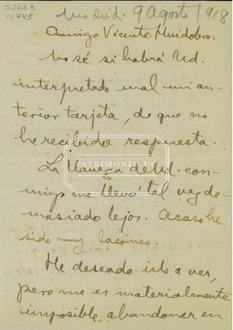 02683
a745
Madrid. 9 Agosto / 918
Amigo Vicente Huidobro:
No sé si habrá Ud.
interpretado mal mi an-
terior tarjeta, de que no
he recibido respuesta.
La llaneza de Ud. con-
migo me llevó tal vez de-
masiado lejos. Acaso he
sido muy lacónico.
He deseado irlo a ver,
pero me es materialmente
imposible abandonar en
PATRIMONIO UC